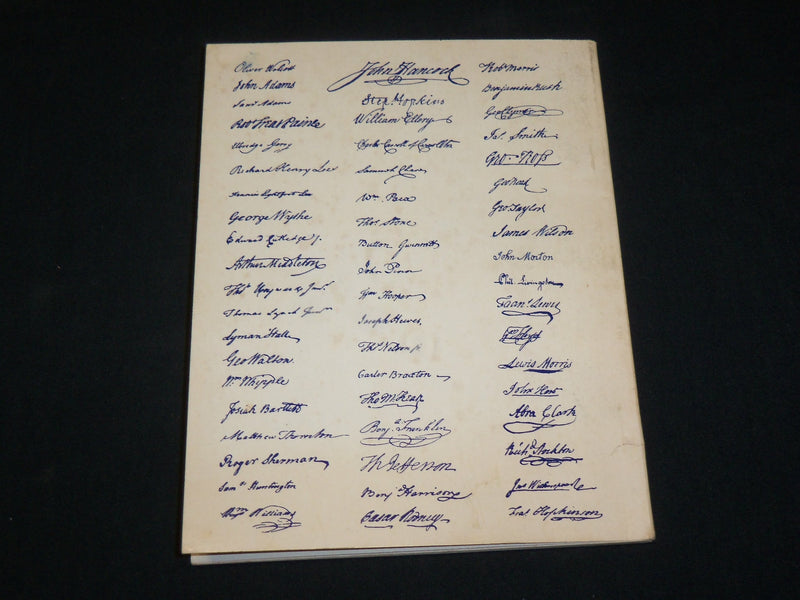 Oliver Wolcott
John Adams
Saml Adams
Robt Treat Paine
Elbridge Gerry
Richard Henry Lee
Francis Lightfoot Lee
George Wythe
Edward Rutledge
Arthur Middleton
Thos Heyward Junr
Thomas Lynch Junr
Lyman Hall
Geo Walton
Wm Whipple
Josiah Bartlett
Matthew Thornton
Roger Sherman
Saml Huntington
Wm Williams
John Hancock
Step. Hopkins
William Ellery
Charles Carroll of Carrollton
Samuel Chase
Wm. Paca
Thos. Stone
Button Gwinnett
John Penn
Wm Hooper
Joseph Hewes,
Thos Nelson jr.
Carter Braxton
Tho M:Kean
Benj. Franklin
Th Jefferson
Benj Harrison
Caesar Rodney
Robt Morris
Benjamin Rush
Geo Clymer
Jas. Smith
Geo. Ross
Geo Read
Geo. Taylor
James Wilson
John Morton
Phil. Livingston
Frans. Lewis
Wm Floyd
Lewis Morris
John Hart
Abra Clark
Richd Stockton
Jno Witherspoon
Fras. Hopkinson